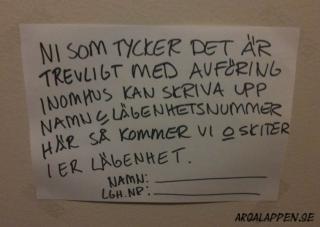 NI SOM TYCKER DET ÄR
TREVLIGT MED AVFÖRING
INOMHUS KAN SKRIVA UPP
NAMN O LÄGENHETSNUMMER
HÄR SÅ KOMMER VI O SKITER
I ER LÄGENHET.
NAMN:
LGH.NR:
ARGALAPPEN.SE